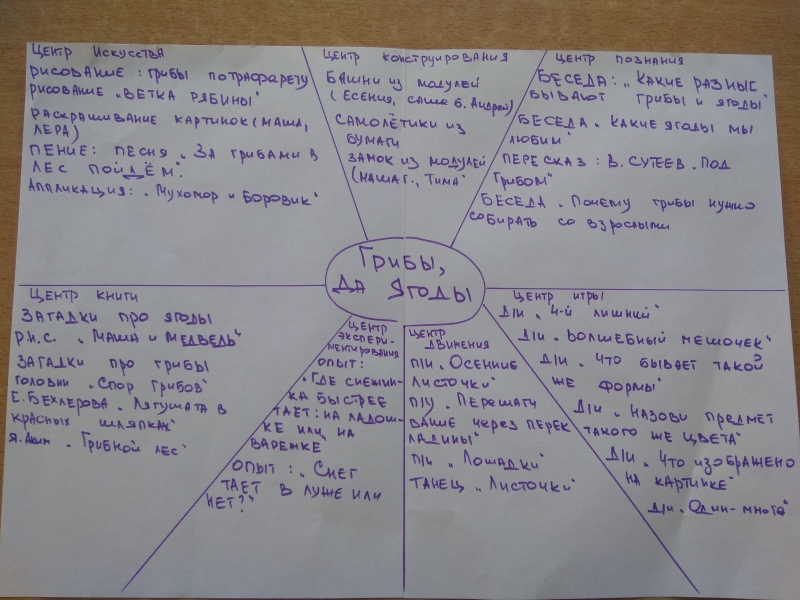 Центр Искусства
Рисование: грибы по трафарету
Рисование „Ветка рябины"
Раскрашивание картинок (Маша,
Лера)
Пение: песня „За грибами в
лес пойдём."
Аппликация: „Мухомор и Боровик"
Центр конструирования
Башни из модулей
(Есения, Саша Б. Андрей)
Самолётики из
бумаги
Замок из модулей
(Маша Г., Тима"
Центр познания
Беседа: „Какие разные
бывают грибы и ягоды"
Беседа „Какие ягоды мы
любим"
Пересказ: В. Сутеев „Под
грибом"
Беседа „Почему грибы нужно
собирать со взрослыми
Грибы,
да ягоды
Центр книги
Загадки про ягоды
р.н.с. „Маша и медведь"
Загадки про грибы
Головин „Спор грибов"
Е. Бехлерова „Лягушата в
красных шляпках"
Я. Аким „Грибной лес"
Центр
экспери-
ментирования
опыт:
„Где снежин-
ка быстрее
тает: на ладош-
ке или на
варежке
опыт: „Снег
тает в луже или
нет?"
Центр
движения
п/и „Осенние
листочки"
п/у „Перешаги
вание через перек
ладины"
п/и „Лошадки"
танец „Листочки"
Центр игры
д/и „4-й лишний"
д/и „Волшебный мешочек"
д/и „Что бывает такой
же формы"
д/и „Назови предмет
такого же цвета"
д/и „Что изображено
на картинке"
д/и „Один-много"